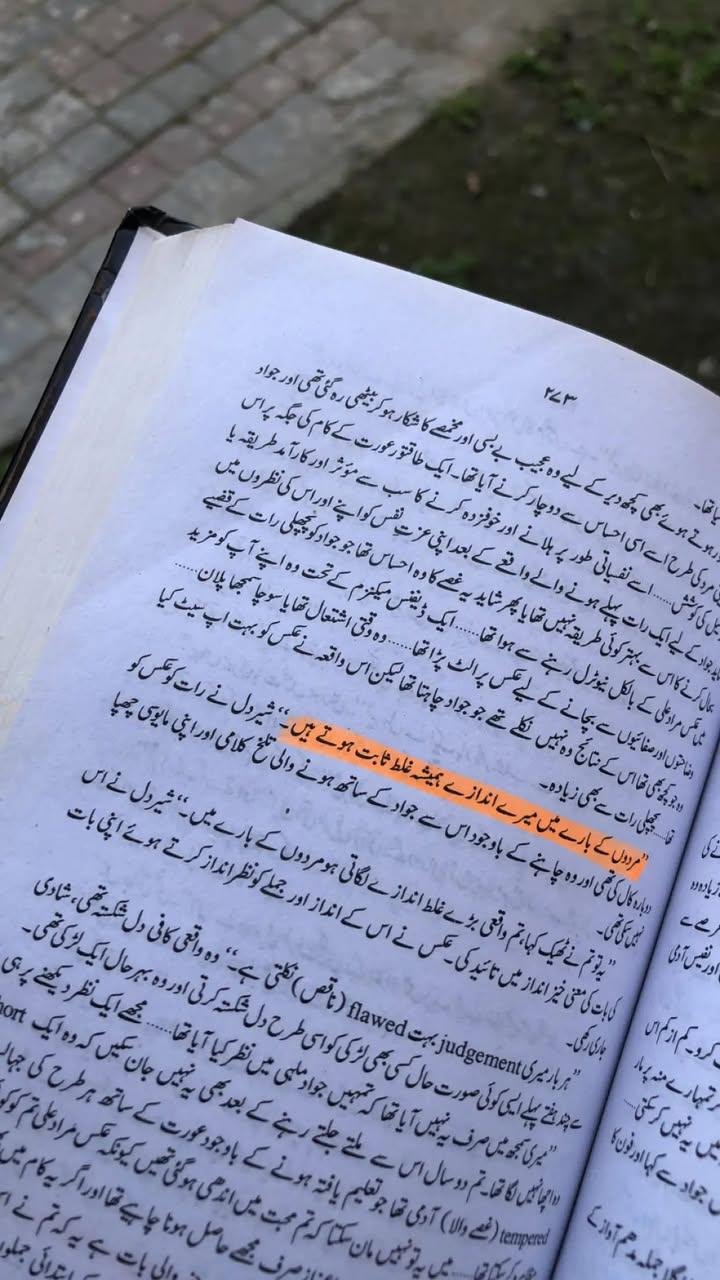 ۲۷۳
ہوتے ہوئے بھی کچھ دیر کے لیے وہ عجیب بے بسی اور مخمصے کا شکار ہو کر بیٹھی رہ گئی تھی اور جواد
مرد کی طرح اسے اسی احساس سے دوچار کرنے آیا تھا۔ ایک طاقتور عورت کے کام کی جگہ پر اس
کی کوشش...... اسے نفسیاتی طور پر ہلانے اور خوفزدہ کرنے کا سب سے مؤثر اور کارآمد طریقہ یا
جواد کے لیے ایک رات پہلے ہونے والے واقعے کے بعد اپنی عزت نفس کو اپنے اور اس کی نظروں میں
بحال کرنے کا اس سے بہتر کوئی طریقہ نہیں تھا یا پھر شاید یہ غصے کا وہ احساس تھا جو جواد کو پچھلی رات کے قصے
میں عکس مراد علی کے بالکل نیوٹرل رہنے سے ہوا تھا...... ایک ڈیفنس میکنزم کے تحت وہ اپنے آپ کو مزید
وضاحتوں اور صفائیوں سے بچانے کے لیے عکس پر الٹ پڑا تھا...... وہ وقتی اشتعال تھا یا سوچا سمجھا پلان......
وہ جو کچھ بھی تھا اس کے نتائج وہ نہیں نکلے تھے جو جواد چاہتا تھا لیکن اس واقعہ نے عکس کو بہت اپ سیٹ کیا
تھا...... پچھلی رات سے بھی زیادہ۔
”مردوں کے بارے میں میرے اندازے ہمیشہ غلط ثابت ہوتے ہیں۔“ شیردل نے رات کو عکس کو
دوبارہ کال کی تھی اور وہ چاہنے کے باوجود اس سے جواد کے ساتھ ہونے والی تلخ کلامی اور اپنی مایوسی چھپا
نہیں سکی تھی۔
”یہ تو تم نے ٹھیک کہا، تم واقعی بڑے غلط اندازے لگاتی ہو مردوں کے بارے میں۔“ شیردل نے اس
کی بات کی معنی خیز انداز میں تائید کی۔ عکس نے اس کے انداز اور جملے کو نظر انداز کرتے ہوئے اپنی بات
جاری رکھی۔
”ہر بار میری judgement بہت flawed (ناقص) نکلتی ہے۔“ وہ واقعی کافی دل شکستہ تھی، شادی
سے چند ہفتے پہلے ایسی کوئی صورت حال کسی بھی لڑکی کو اسی طرح دل شکستہ کرتی اور وہ بہر حال ایک لڑکی تھی۔
”میری سمجھ میں صرف یہ نہیں آیا تھا کہ تمہیں جواد ملہی میں نظر کیا آیا تھا...... مجھے ایک نظر دیکھنے پر ہی
اچھا نہیں لگا تھا۔ تم دو سال اس سے ملتے جلتے رہنے کے بعد بھی یہ نہیں جان سکیں کہ وہ ایک
tempered (غصے والا) آدمی تھا جو تعلیم یافتہ ہونے کے باوجود عورت کے ساتھ ہر طرح کی
میں یہ تو نہیں مان سکتا کہ تم محبت میں اندھی ہو گئی تھیں کیونکہ عکس مراد علی تم کو
صرف مجھے حاصل ہونا چاہیے تھا اور اگر یہ کام
والی بات ہے یہ کہ تم نے